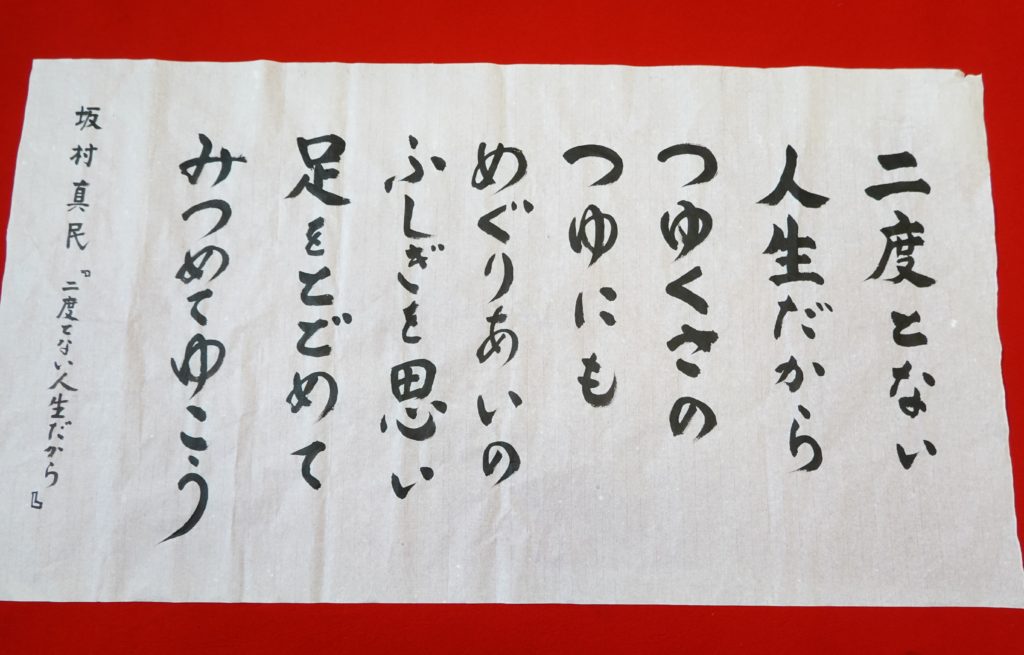 二度とない
人生だから
つゆくさの
つゆにも
めぐりあいの
ふしぎを思い
足をとどめて
みつめてゆこう
坂村真民『二度とない人生だから』